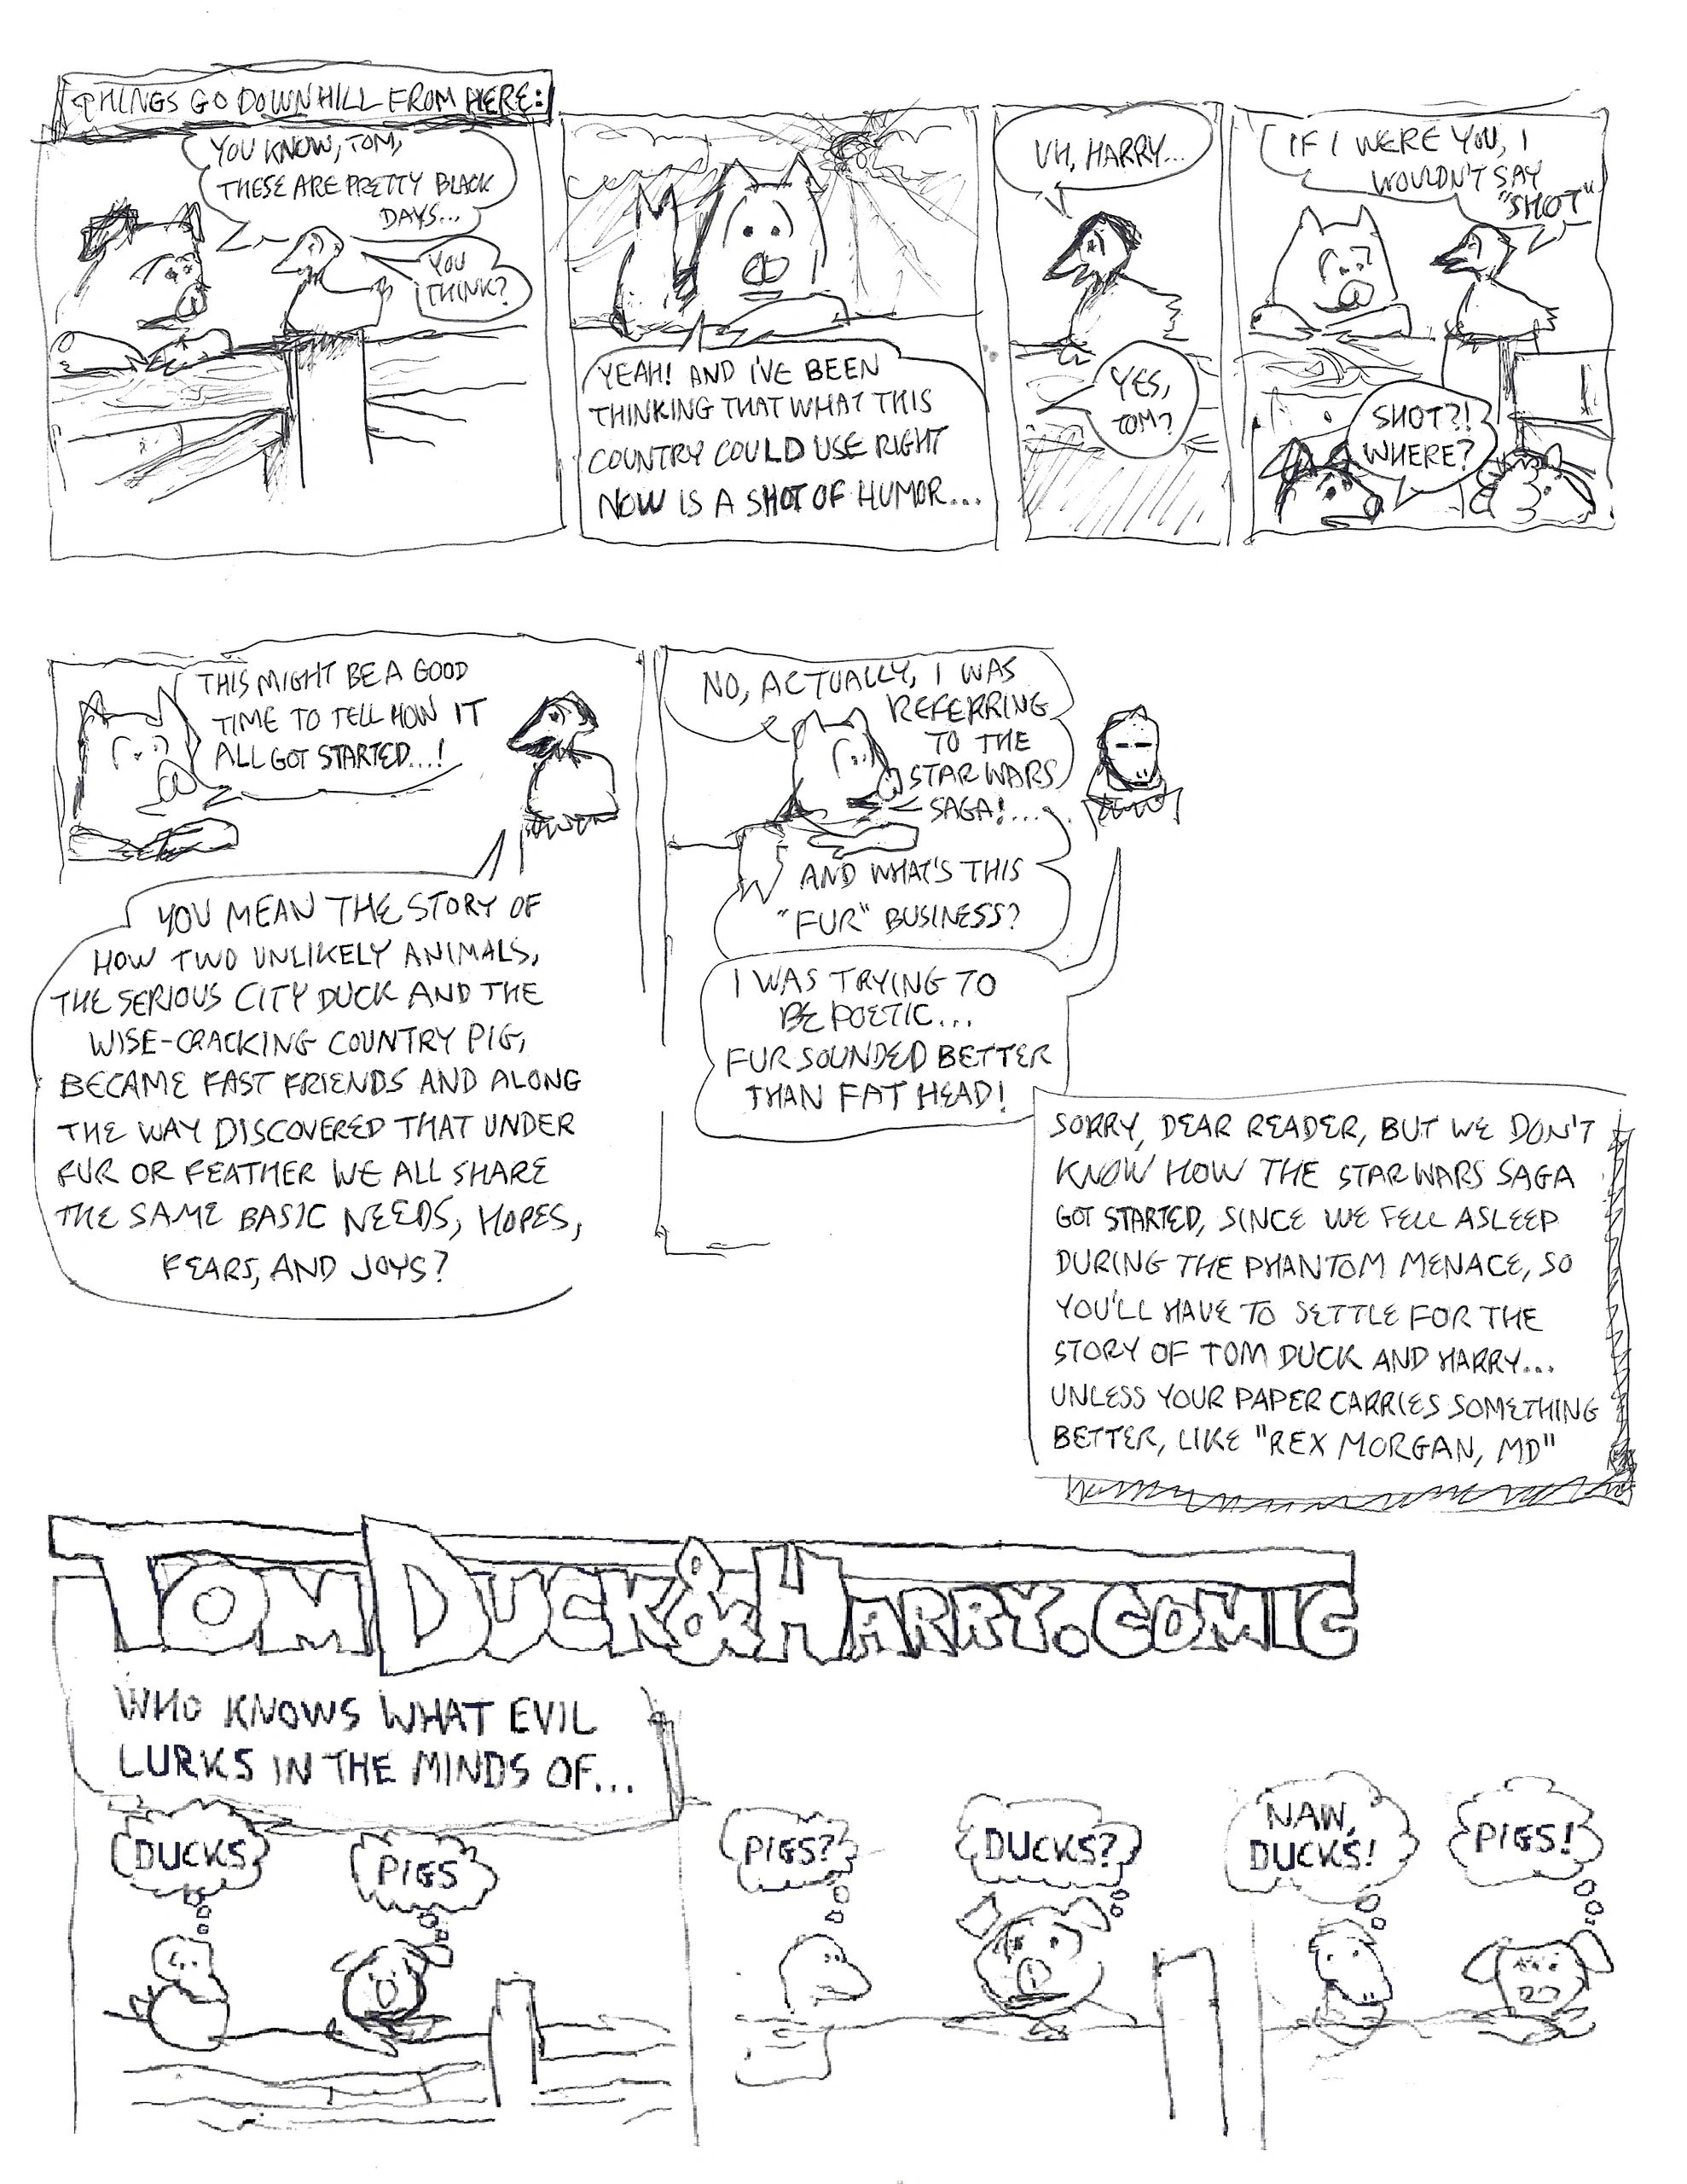 THINGS GO DOWNHILL FROM HERE:
YOU KNOW, TOM,
THESE ARE PRETTY BLACK
DAYS...
YOU
THINK?
YEAH! AND I'VE BEEN
THINKING THAT WHAT THIS
COUNTRY COULD USE RIGHT
NOW IS A SHOT OF HUMOR...
UH, HARRY...
YES,
TOM?
IF I WERE YOU, I
WOULDN'T SAY
"SHOT"
SHOT?!
WHERE?
THIS MIGHT BE A GOOD
TIME TO TELL HOW IT
ALL GOT STARTED...!
YOU MEAN THE STORY OF
HOW TWO UNLIKELY ANIMALS,
THE SERIOUS CITY DUCK AND THE
WISE-CRACKING COUNTRY PIG,
BECAME FAST FRIENDS AND ALONG
THE WAY DISCOVERED THAT UNDER
FUR OR FEATHER WE ALL SHARE
THE SAME BASIC NEEDS, HOPES,
FEARS, AND JOYS?
NO, ACTUALLY, I WAS
REFERRING
TO THE
STAR WARS
SAGA!...
AND WHAT'S THIS
"FUR" BUSINESS?
I WAS TRYING TO
BE POETIC...
FUR SOUNDED BETTER
THAN FAT HEAD!
SORRY, DEAR READER, BUT WE DON'T
KNOW HOW THE STAR WARS SAGA
GOT STARTED, SINCE WE FELL ASLEEP
DURING THE PHANTOM MENACE, SO
YOU'LL HAVE TO SETTLE FOR THE
STORY OF TOM DUCK AND HARRY...
UNLESS YOUR PAPER CARRIES SOMETHING
BETTER, LIKE "REX MORGAN, MD"
TOM DUCK & HARRY.COMIC
WHO KNOWS WHAT EVIL
LURKS IN THE MINDS OF...
DUCKS
PIGS
PIGS?
DUCKS?
NAW,
DUCKS!
PIGS!